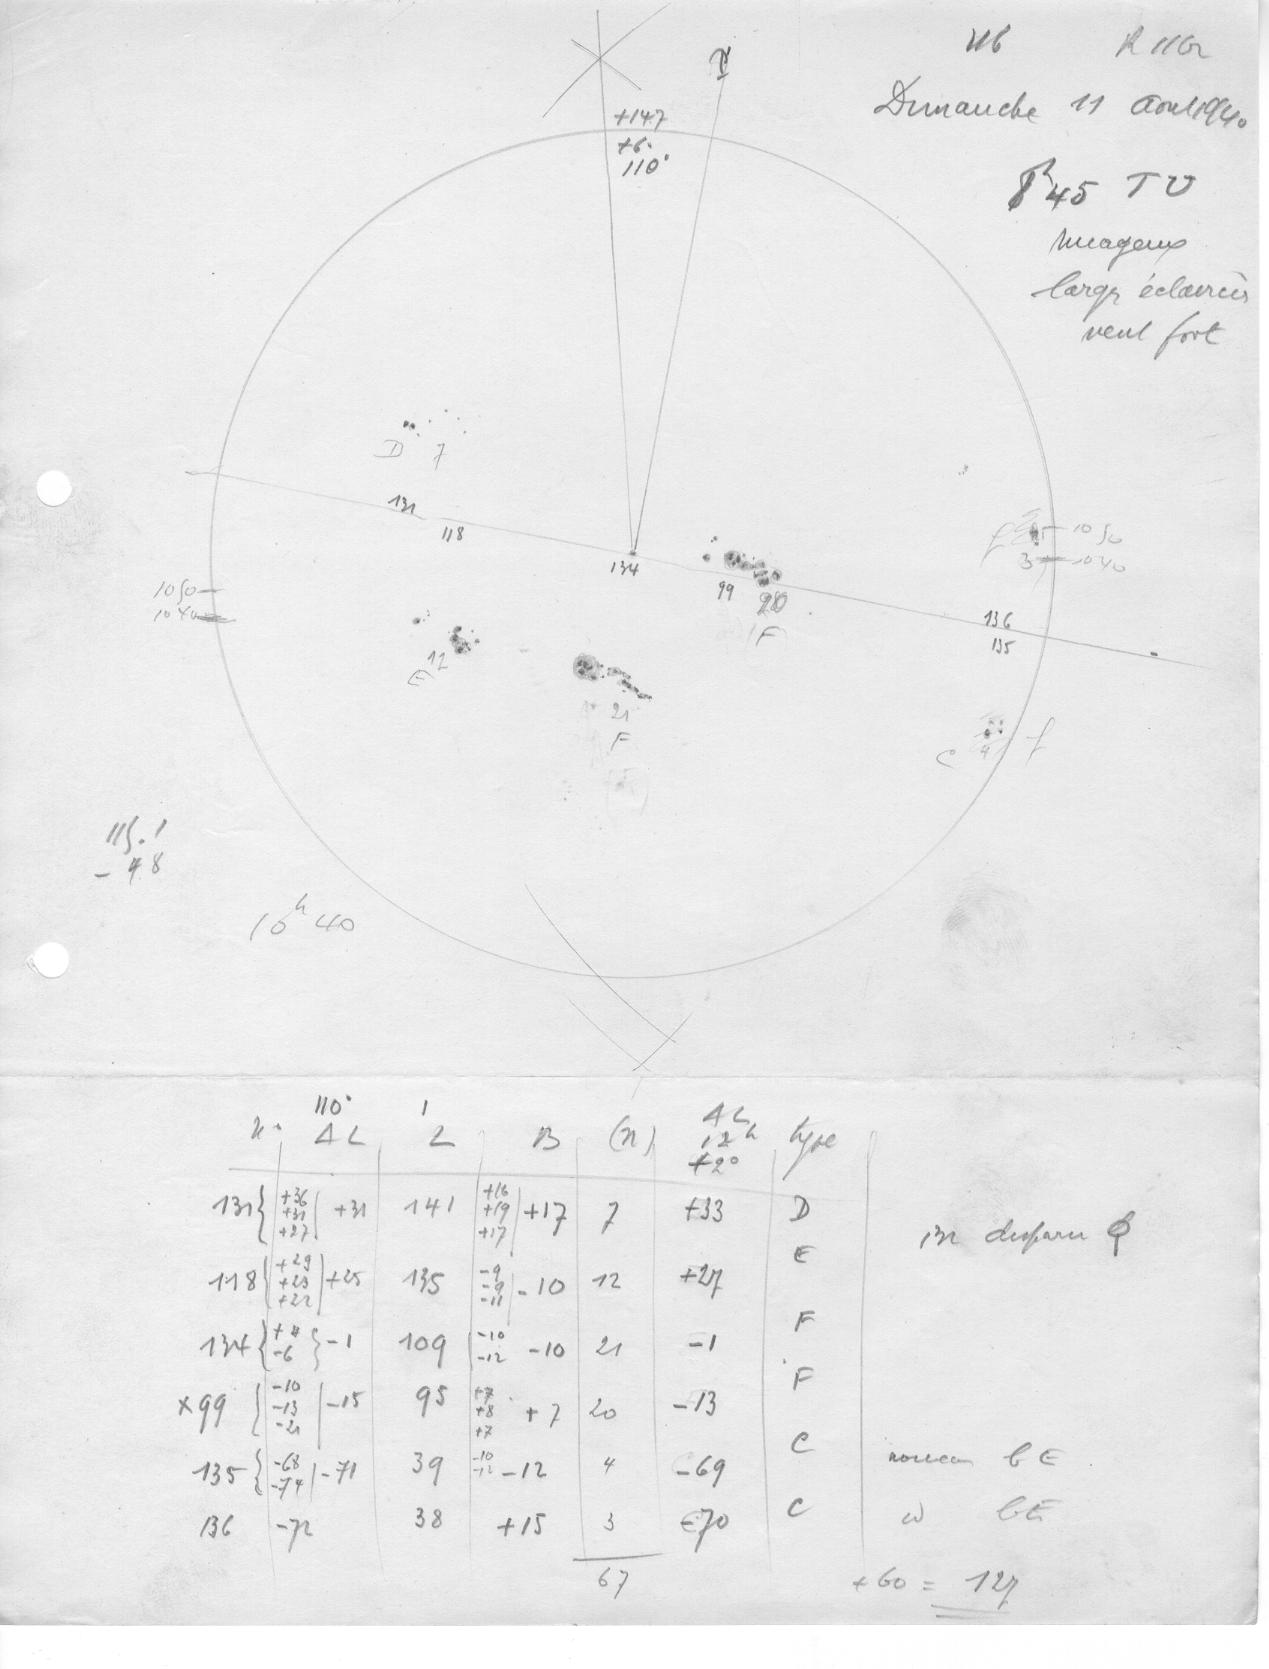 116 R 1162
Dimanche 11 Aout 1940
8h45 TU
nuageux
larges éclaircies
vent fort
+147
+6.
110°
D 7
131
118
134
99
20
(F)
136
135
1050
1040
1050
3 1040
12
E
21
F
C 4 f
115.1
10h40
110°
n. ΔL L B (n) ΔL 12h +2° type
131 { +36 +31 +27 | +31 141 +16 +19 +17 | +17 7 +33 D
118 { +29 +23 +22 | +25 135 -9 -9 -11 | -10 12 +27 E
134 { +4 -6 } -1 109 -10 -12 -10 21 -1 F
x99 { -10 -13 -21 | -15 95 +7 +8 +7 +7 20 -13 F
135 { -68 -74 | -71 39 -10 -12 -12 4 -69 C
136 -72 38 +15 3 -70 C
132 disparu
nouveau bE
bE
67
+60 = 127